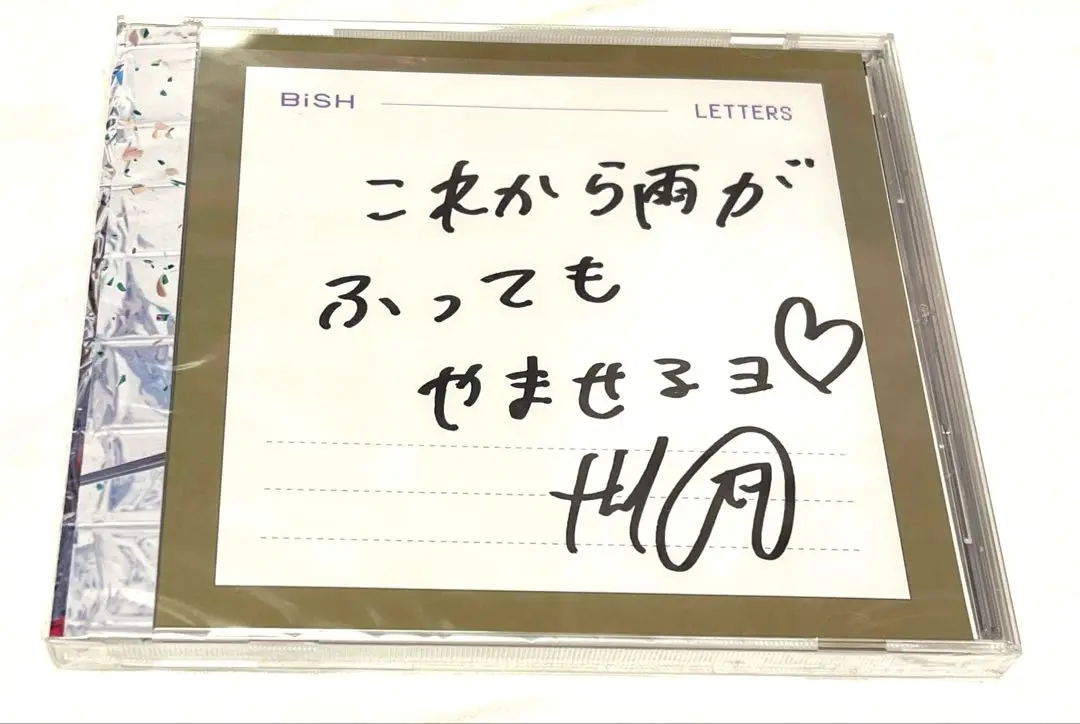 BiSH LETTERS
これから雨が
ふっても
やませるヨ♡